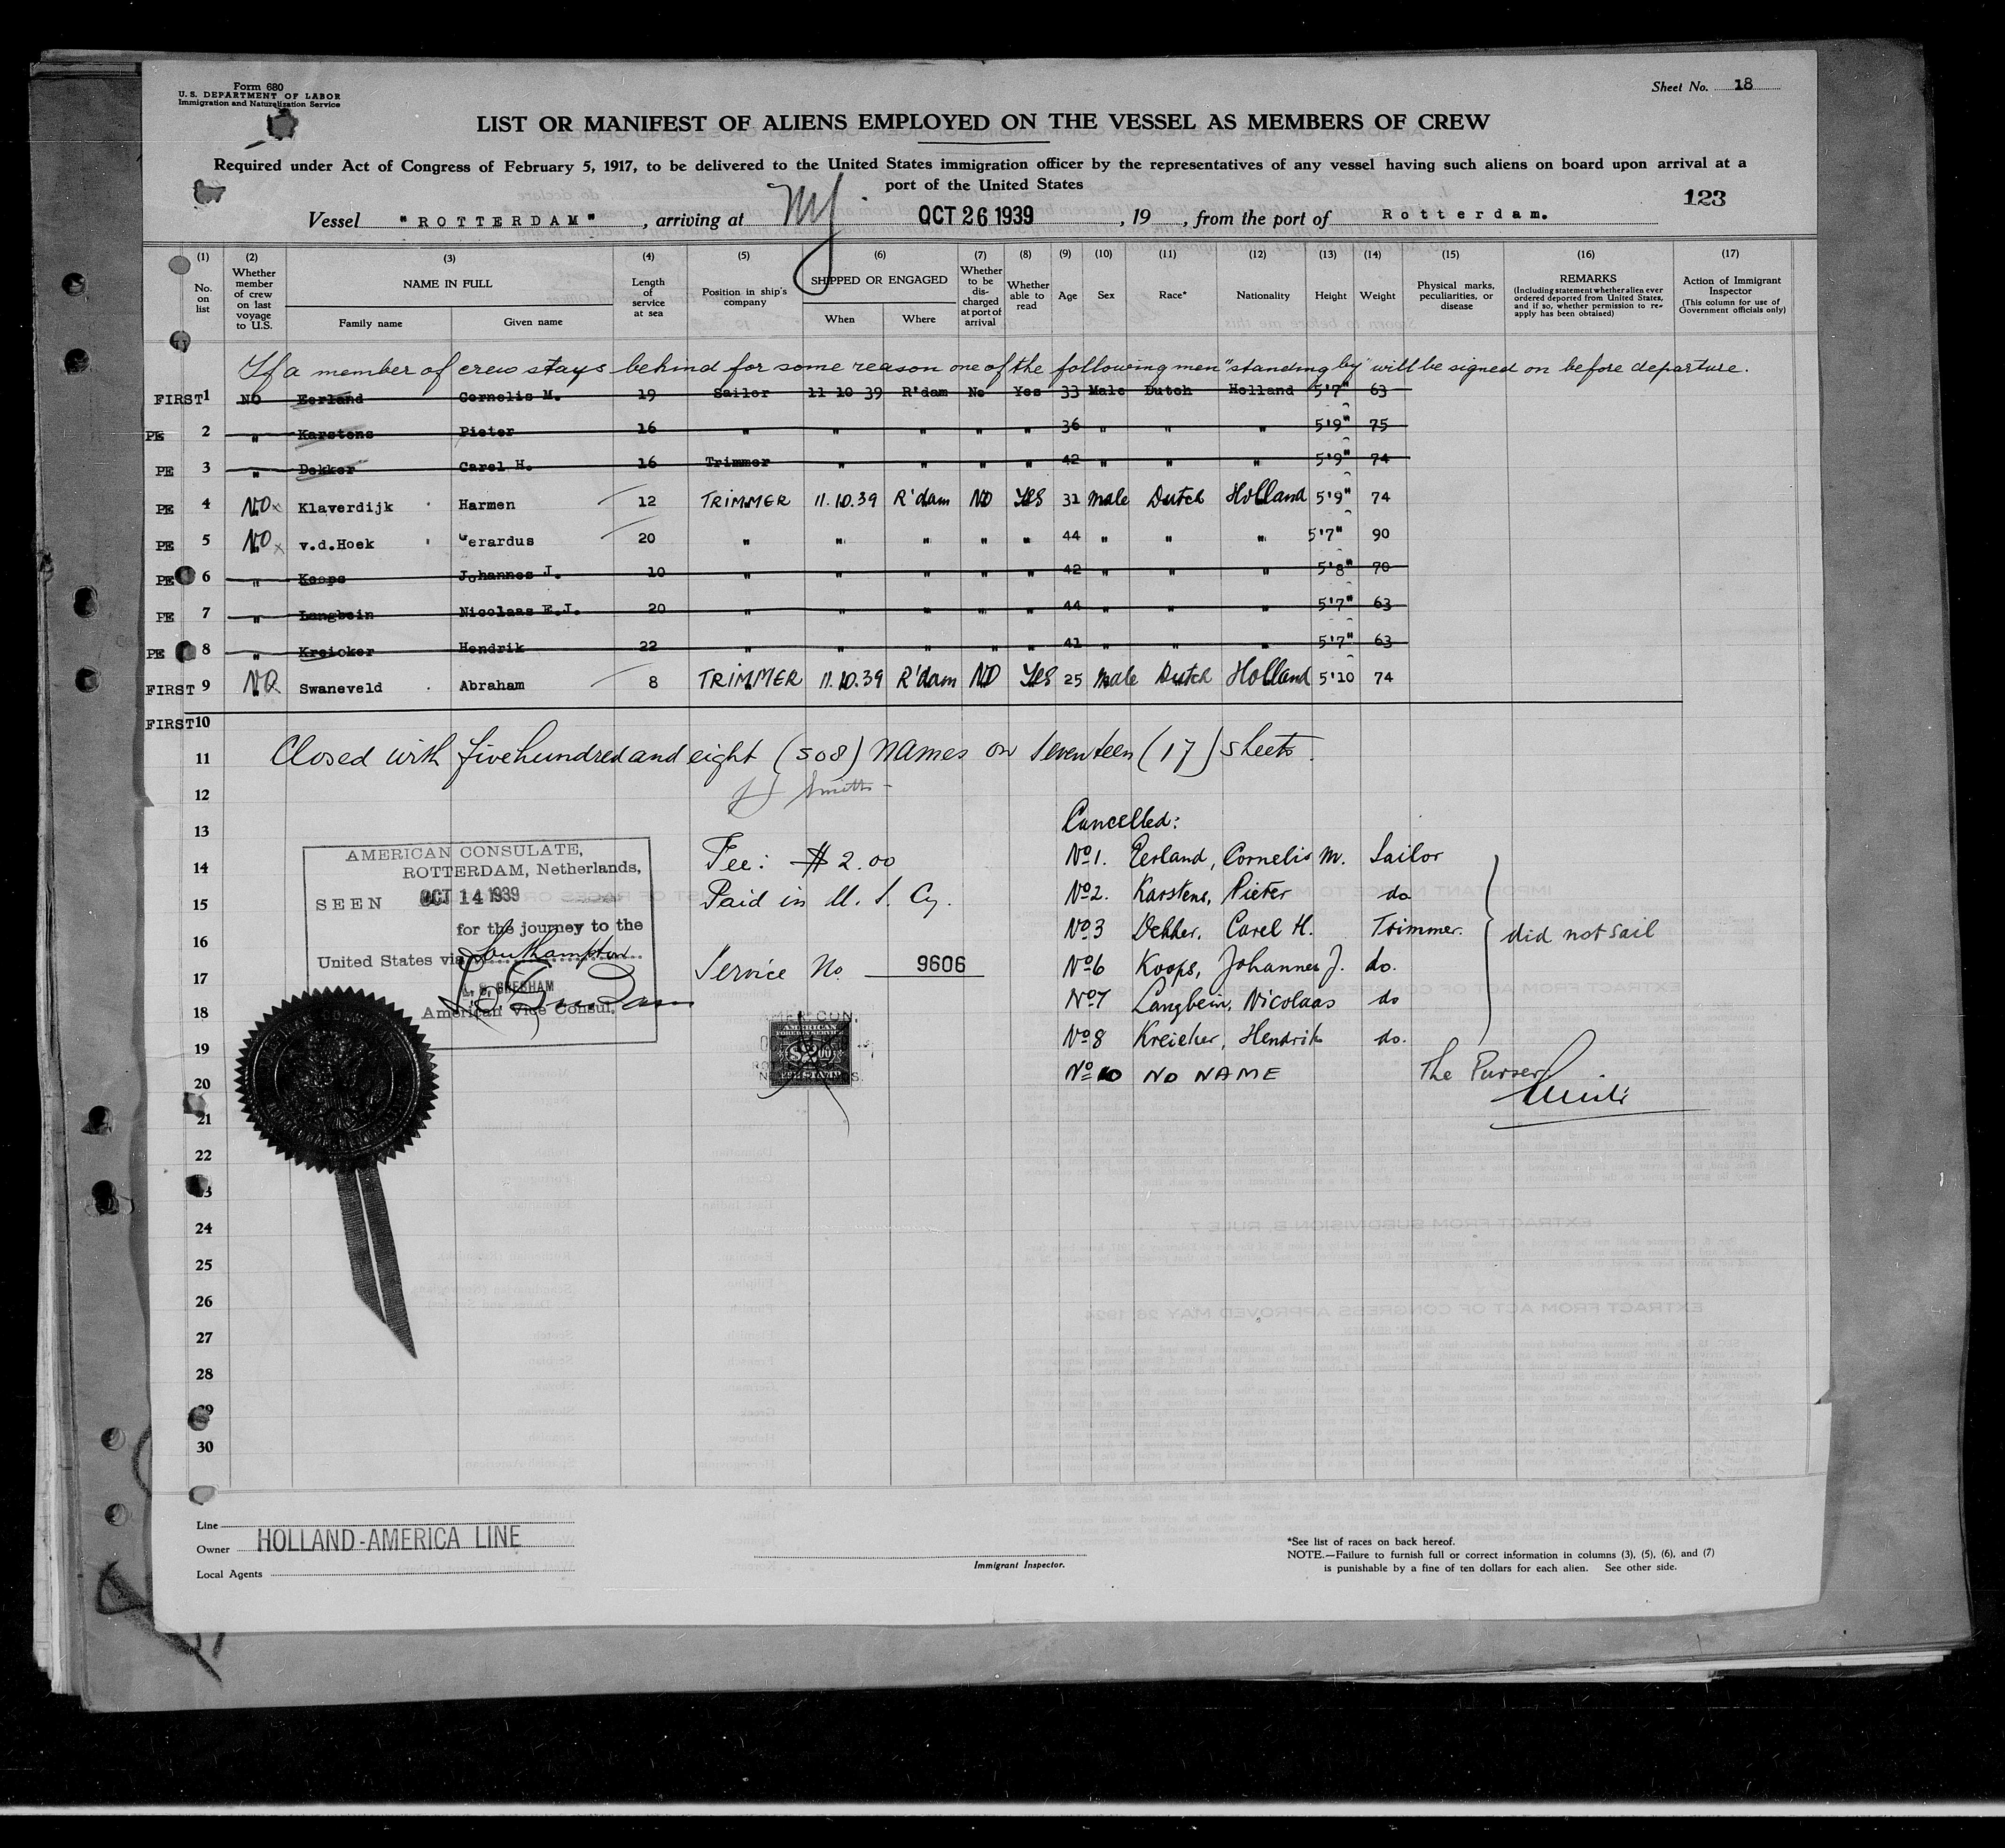 Form 680
U. S. DEPARTMENT OF LABOR
Immigration and Naturalization Service
Sheet No. 18
LIST OR MANIFEST OF ALIENS EMPLOYED ON THE VESSEL AS MEMBERS OF CREW
Required under Act of Congress of February 5, 1917, to be delivered to the United States immigration officer by the representatives of any vessel having such aliens on board upon arrival at a
port of the United States
123
Vessel "ROTTERDAM", arriving at NY OCT 26 1939, 19 , from the port of Rotterdam.
(1) (2) (3) (4) (5) (6) (7) (8) (9) (10) (11) (12) (13) (14) (15) (16) (17)
No. on list
Whether member of crew on last voyage to U.S.
NAME IN FULL
Family name
Given name
Length of service at sea
Position in ship's company
SHIPPED OR ENGAGED
When
Where
Whether to be discharged at port of arrival
Whether able to read
Age
Sex
Race*
Nationality
Height
Weight
Physical marks, peculiarities, or disease
REMARKS
(Including statement whether alien ever ordered deported from United States, and if so, whether permission to reapply has been obtained)
Action of Immigrant Inspector
(This column for use of Government officials only)
If a member of crew stays behind for some reason one of the following men "standing by" will be signed on before departure.
FIRST 1 NO Eerland Cornelis M. 19 Sailor 11 10 39 R'dam No Yes 33 Male Dutch Holland 5'7" 63
PE 2 " Karstens Pieter 16 " " " " " 36 " " " 5'9" 75
PE 3 " Dekker Carel H. 16 Trimmer " " " " 42 " " " 5'9" 74
PE 4 NO x Klaverdijk Harmen 12 TRIMMER 11.10.39 R'dam NO YES 31 male Dutch Holland 5'9" 74
PE 5 NO x v.d.Hoek Gerardus 20 " " " " " 44 " " " 5'7" 90
PE 6 " Koops Johannes J. 10 " " " " " 42 " " " 5'8" 70
PE 7 " Langbein Nicolaas E.J. 20 " " " " " 44 " " " 5'7" 63
PE 8 " Kreicker Hendrik 22 " " " " " 41 " " " 5'7" 63
FIRST 9 NO Swaneveld Abraham 8 TRIMMER 11.10.39 R'dam NO YES 25 male Dutch Holland 5'10 74
FIRST 10
11 Closed with fivehundred and eight (508) names on seventeen (17) sheets.
12
13 Cancelled:
14 Fee: $2.00 No 1. Eerland, Cornelis M. Sailor
15 Paid in U. S. Cy. No 2. Karstens, Pieter do
16 No 3 Dekker, Carel H. Trimmer. did not sail
17 Service No. 9606 No 6 Koops, Johannes J. do.
18 No 7 Langbein, Nicolaas do
19 No 8 Kreicker, Hendrik do.
20 No 10 NO NAME The Purser
21
22
23
24
25
26
27
28
29
30
AMERICAN CONSULATE,
ROTTERDAM, Netherlands,
SEEN OCT 14 1939
for the journey to the
United States via Southampton
L. S. GRESHAM
American Vice Consul.
AMERICAN
FOREIGN SERVICE
$2.00
FEE STAMP
Line
Owner HOLLAND-AMERICA LINE
Local Agents
Immigrant Inspector.
*See list of races on back hereof.
NOTE.—Failure to furnish full or correct information in columns (3), (5), (6), and (7)
is punishable by a fine of ten dollars for each alien. See other side.